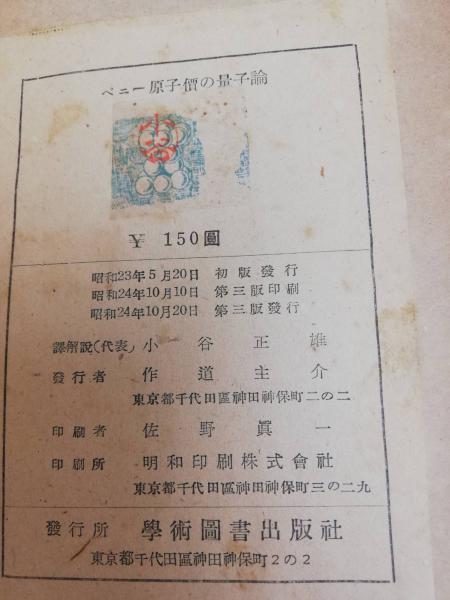 ペニー 原子價の量子論
小谷
¥ 150圓
昭和23年5月20日 初版發行
昭和24年10月10日 第三版印刷
昭和24年10月20日 第三版發行
譯解說(代表) 小谷正雄
發行者 作道圭介
東京都千代田區神田神保町二の二
印刷者 佐野眞一
印刷所 明和印刷株式會社
東京都千代田區神田神保町三の二九
發行所 學術圖書出版社
東京都千代田區神田神保町2の2